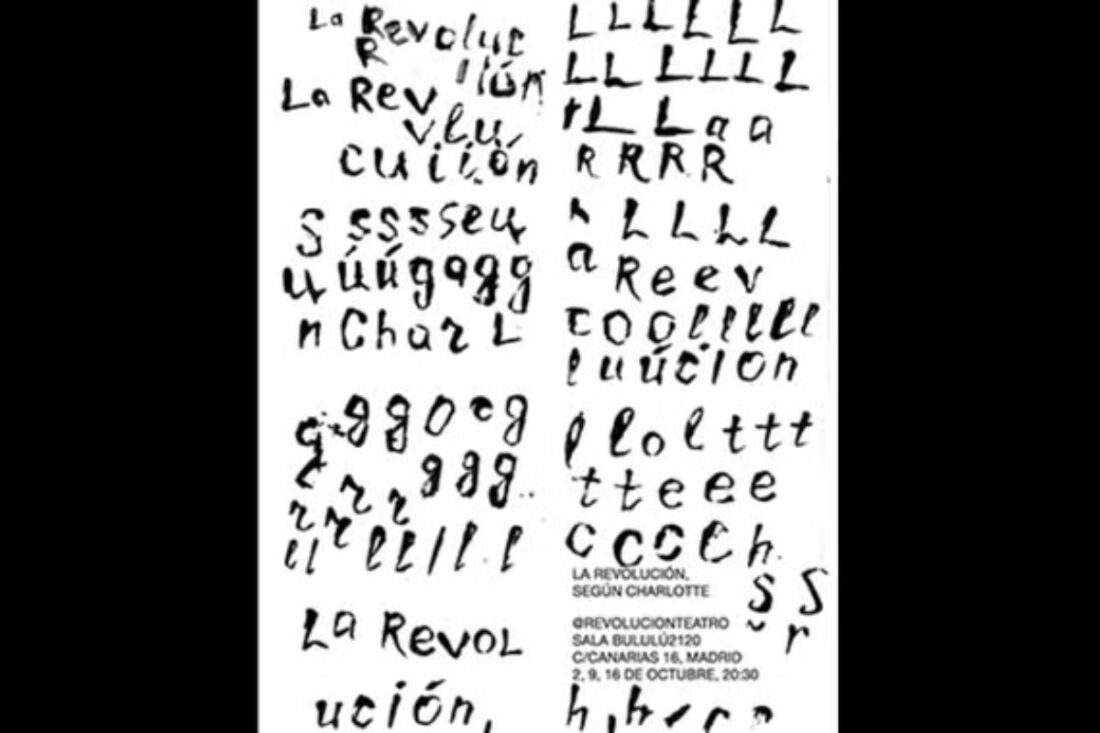 La Revoluc
R
ión
La Rev
vlu
cuiión
s ssssseu
uúúgaggg
n Char L
gggocg
ggg
La Revol
ución,
LLLLLL
LLLLLL
LLaa
RRRR
LLLL
a Reev
oolllll
luúcion
llolttt
tteee
ccCCh
LA REVOLUCIÓN,
SEGÚN CHARLOTTE
@REVOLUCIONTEATRO
SALA BULULÚ2120
C/CANARIAS 16, MADRID
2, 9, 16 DE OCTUBRE, 20:30
s S
r